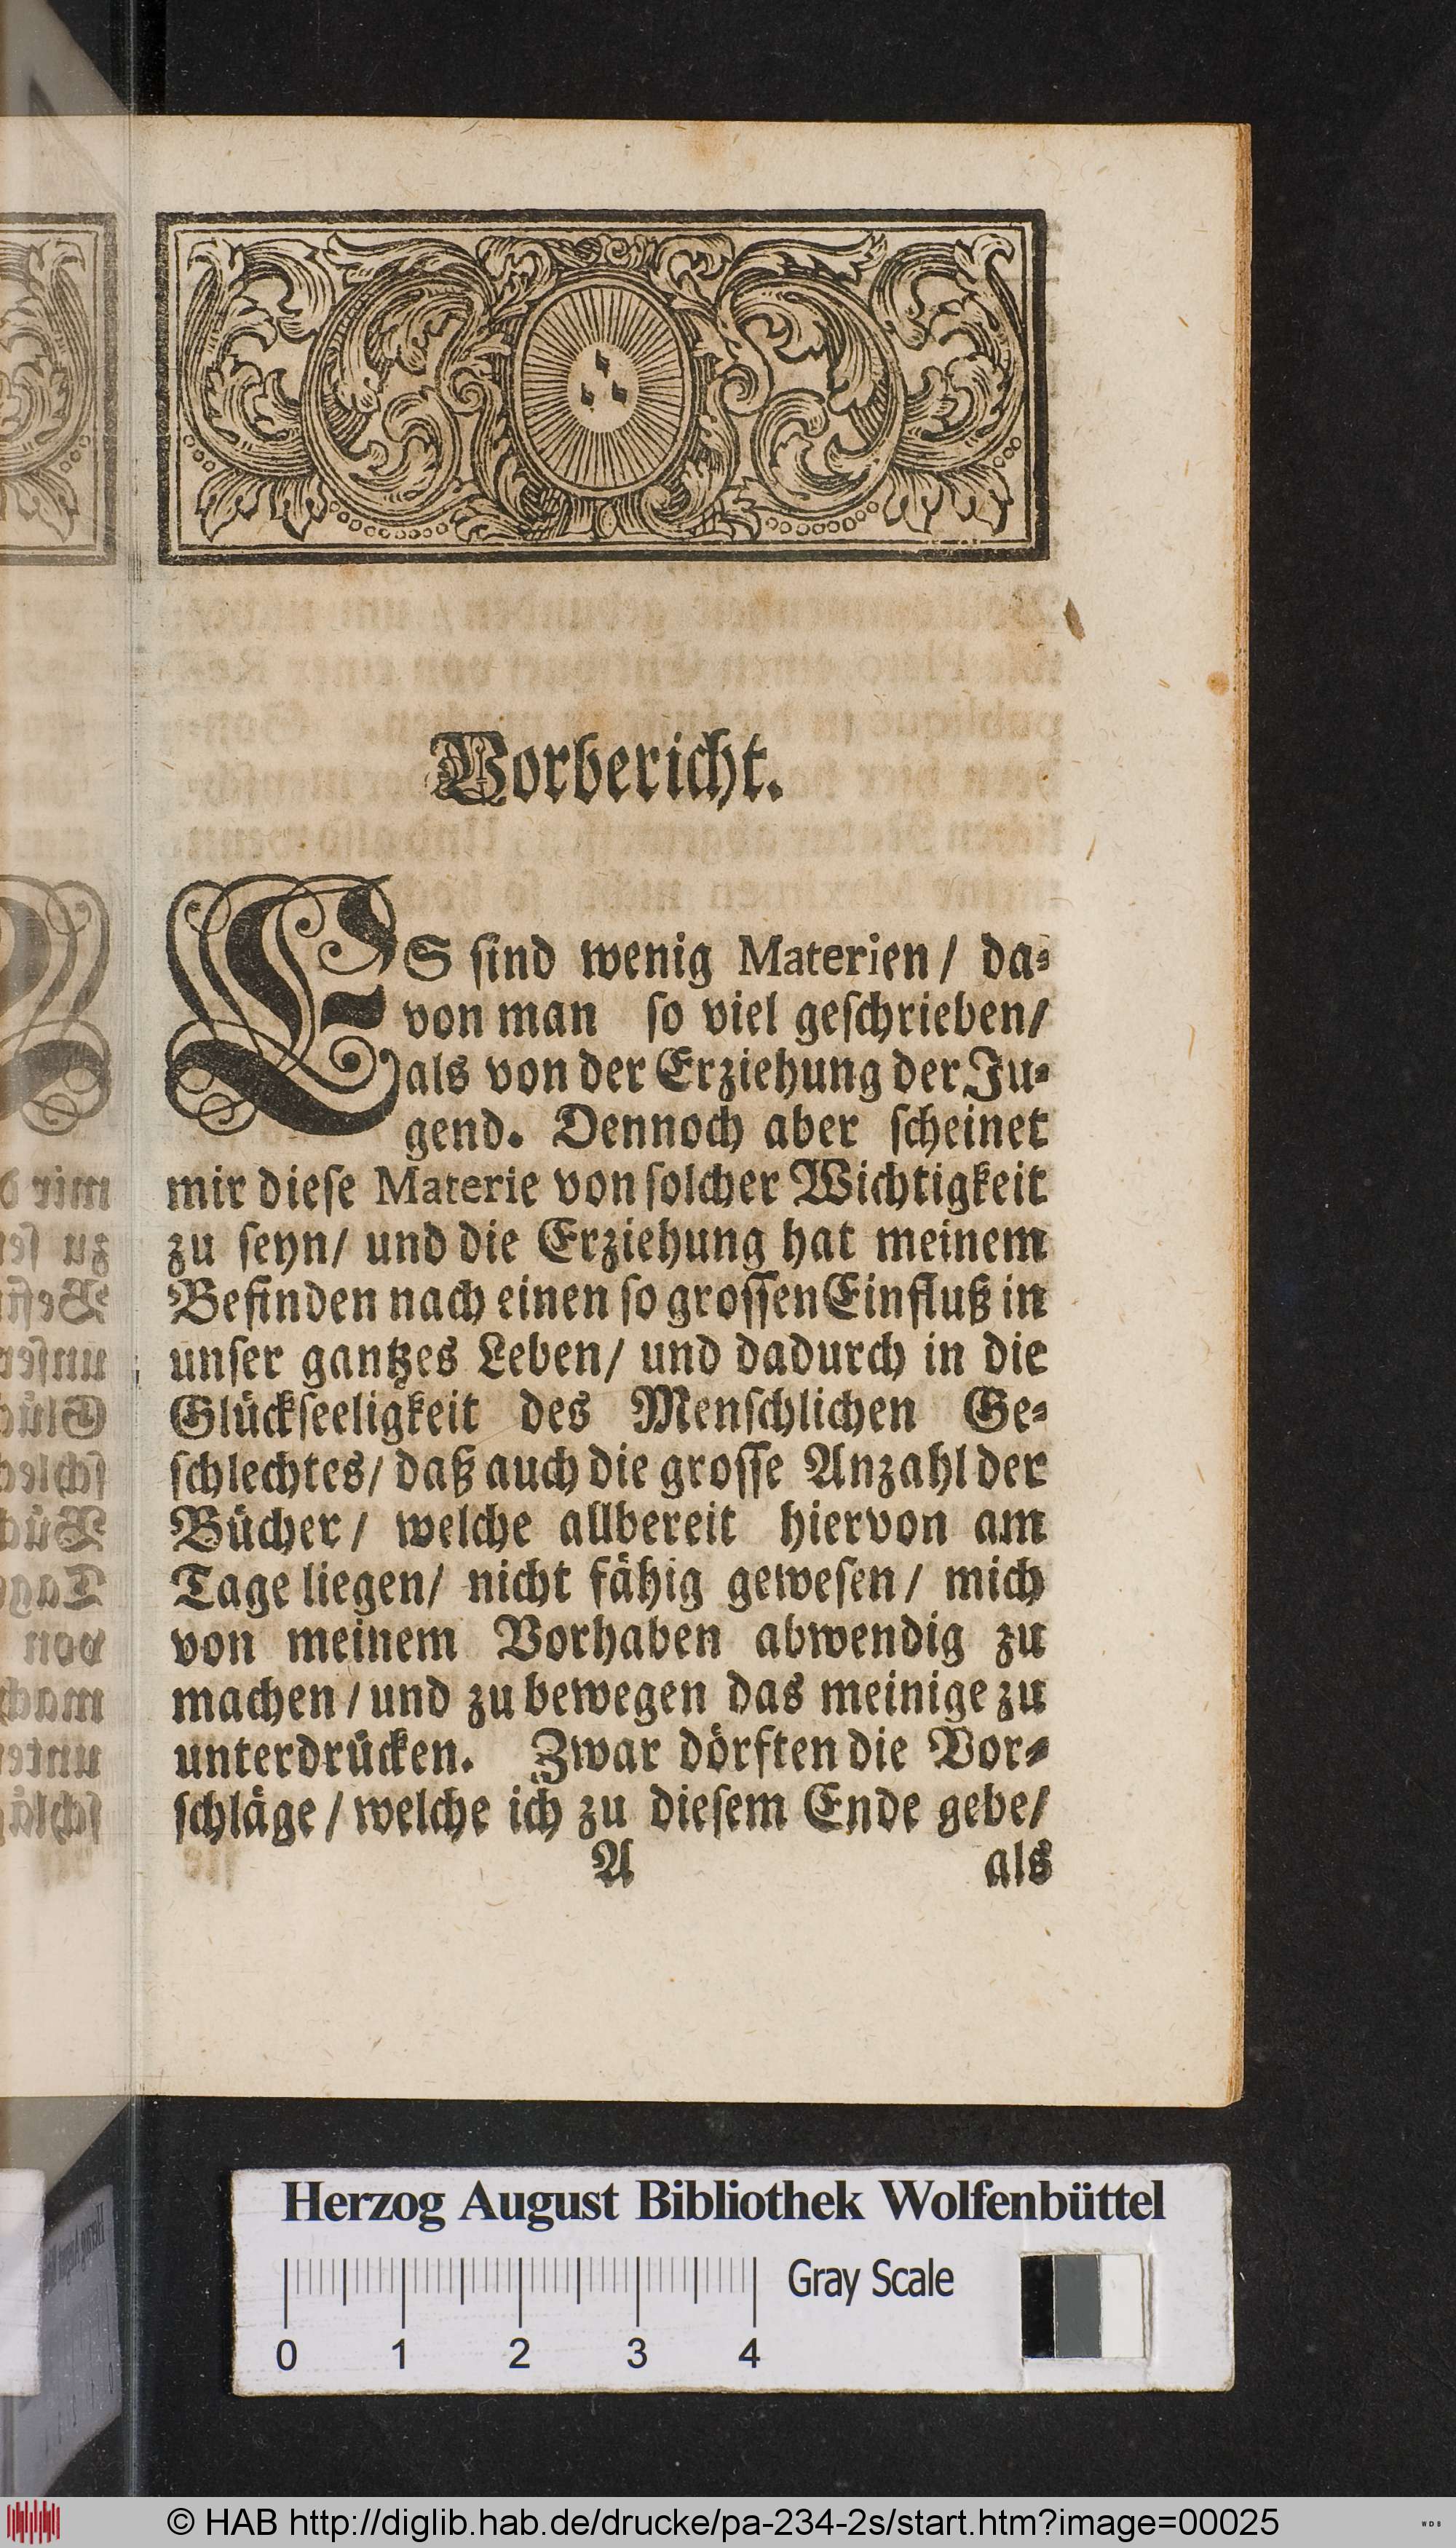 Vorbericht.
ES ſind wenig Materien / da⸗
von man ſo viel geſchrieben/
als von der Erziehung der Ju⸗
gend. Dennoch aber ſcheinet
mir dieſe Materie von ſolcher Wichtigkeit
zu ſeyn/ und die Erziehung hat meinem
Befinden nach einen ſo groſſen Einfluß in
unſer gantzes Leben/ und dadurch in die
Glückſeeligkeit des Menſchlichen Ge⸗
ſchlechtes/ daß auch die groſſe Anzahl der
Bücher/ welche allbereit hiervon am
Tage liegen/ nicht fähig geweſen/ mich
von meinem Vorhaben abwendig zu
machen/ und zu bewegen das meinige zu
unterdrücken. Zwar dörften die Vor⸗
ſchläge/ welche ich zu dieſem Ende gebe/
A als
Herzog August Bibliothek Wolfenbüttel
Gray Scale
0 1 2 3 4
© HAB http://diglib.hab.de/drucke/pa-234-2s/start.htm?image=00025